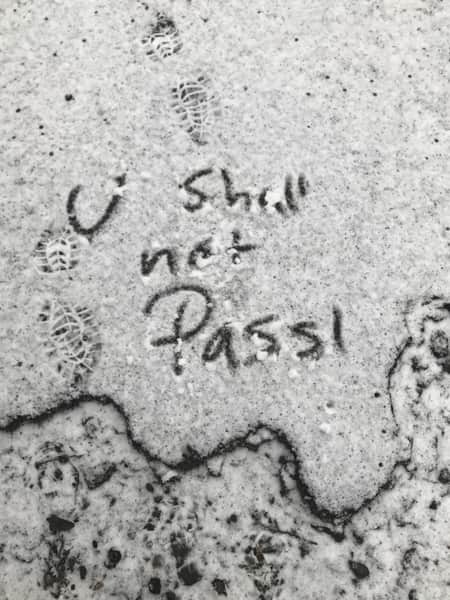 U Shall
not
Pass!